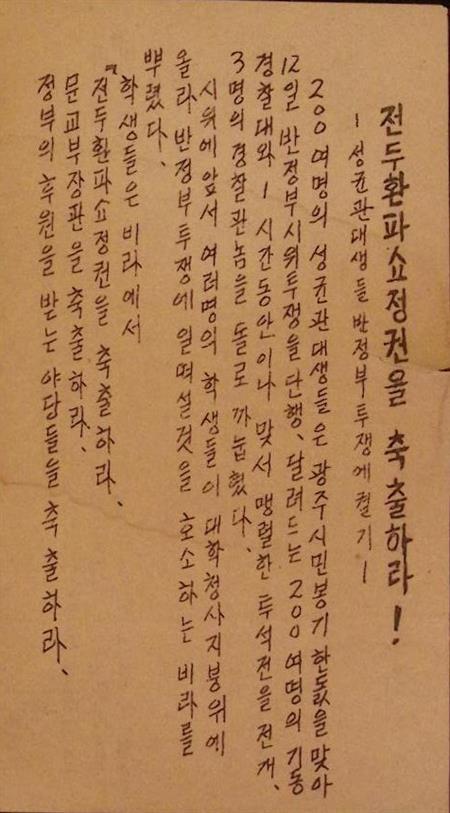 전두환파쇼정권을 축출하라!
- 성균관대생들 반정부투쟁에 궐기 -
200여명의 성균관대생들은 광주시민봉기 한돐을 맞아
12일 반정부시위투쟁을 단행、달려드는 200여명의 기동
경찰대와 1시간동안이나 맞서 맹렬한 투석전을 전개、
3명의 경찰관놈을 돌로 까눕혔다、
시위에 앞서 여러명의 학생들이 대학청사지붕위에
올라 반정부투쟁에 일떠설것을 호소하는 비라를
뿌렸다、
학생들은 비라에서
『전두환파쇼정권을 축출하라、
문교부장관을 축출하라、
정부의 후원을 받는 야당들을 축출하라、